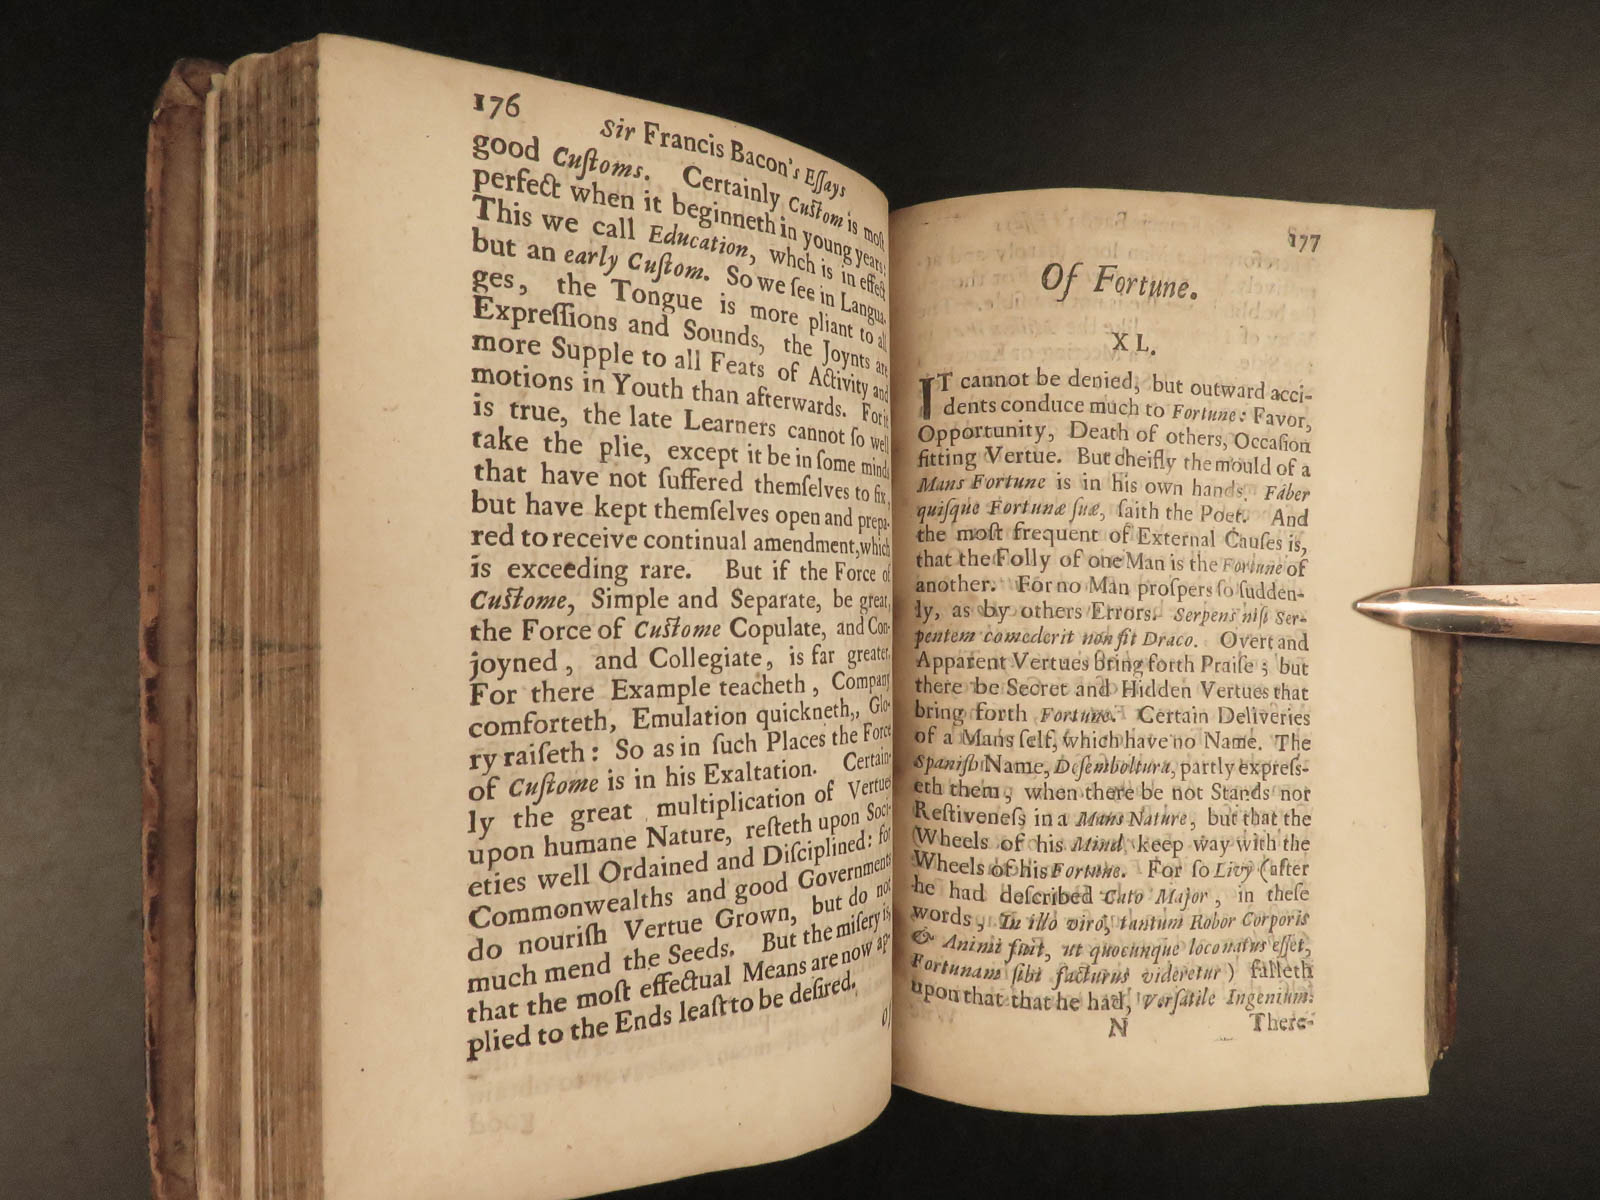 176
Sir Francis Bacon's Eſſays
good Cuſtoms. Certainly Cuſtom is moſt
perfect when it beginneth in young years:
This we call Education, whch is in effect
but an early Cuſtom. So we ſee in Langua-
ges, the Tongue is more pliant to all
Expreſſions and Sounds, the Joynts are
more Supple to all Feats of Activity and
motions in Youth than afterwards. For it
is true, the late Learners cannot ſo well
take the plie, except it be in ſome minds
that have not ſuffered themſelves to fix,
but have kept themſelves open and prepa-
red to receive continual amendment, which
is exceeding rare. But if the Force of
Cuſtome, Simple and Separate, be great,
the Force of Cuſtome Copulate, and Con-
joyned, and Collegiate, is far greater.
For there Example teacheth, Company
comforteth, Emulation quickneth,, Glo-
ry raiſeth: So as in ſuch Places the Force
of Cuſtome is in his Exaltation. Certain-
ly the great multiplication of Vertues
upon humane Nature, reſteth upon Soci-
eties well Ordained and Diſciplined: for
Commonwealths and good Governments
do nouriſh Vertue Grown, but do not
much mend the Seeds. But the miſery is,
that the moſt effectual Means are now ap-
plied to the Ends leaſt to be deſired.
Of
177
Of Fortune.
XL.
IT cannot be denied, but outward acci-
dents conduce much to Fortune: Favor,
Opportunity, Death of others, Occaſion
fitting Vertue. But cheifly the mould of a
Mans Fortune is in his own hands. Faber
quiſque Fortunæ ſuæ, ſaith the Poet. And
the moſt frequent of External Cauſes is,
that the Folly of one Man is the Fortune of
another. For no Man proſpers ſo ſudden-
ly, as by others Errors. Serpens niſi Ser-
pentem comederit non fit Draco. Overt and
Apparent Vertues bring forth Praiſe; but
there be Secret and Hidden Vertues that
bring forth Fortune. Certain Deliveries
of a Mans ſelf, which have no Name. The
Spaniſh Name, Deſemboltura, partly expreſſ-
eth them; when there be not Stands nor
Reſtiveneſs in a Mans Nature, but that the
Wheels of his Mind, keep way with the
Wheels of his Fortune. For ſo Livy (after
he had deſcribed Cato Major, in theſe
words, In illo viro, tantum Robor Corporis
& Animi fuit, ut quocunque loco natus eſſet,
Fortunam ſibi facturus videretur) falleth
upon that that he had, Verſatile Ingenium.
N There-